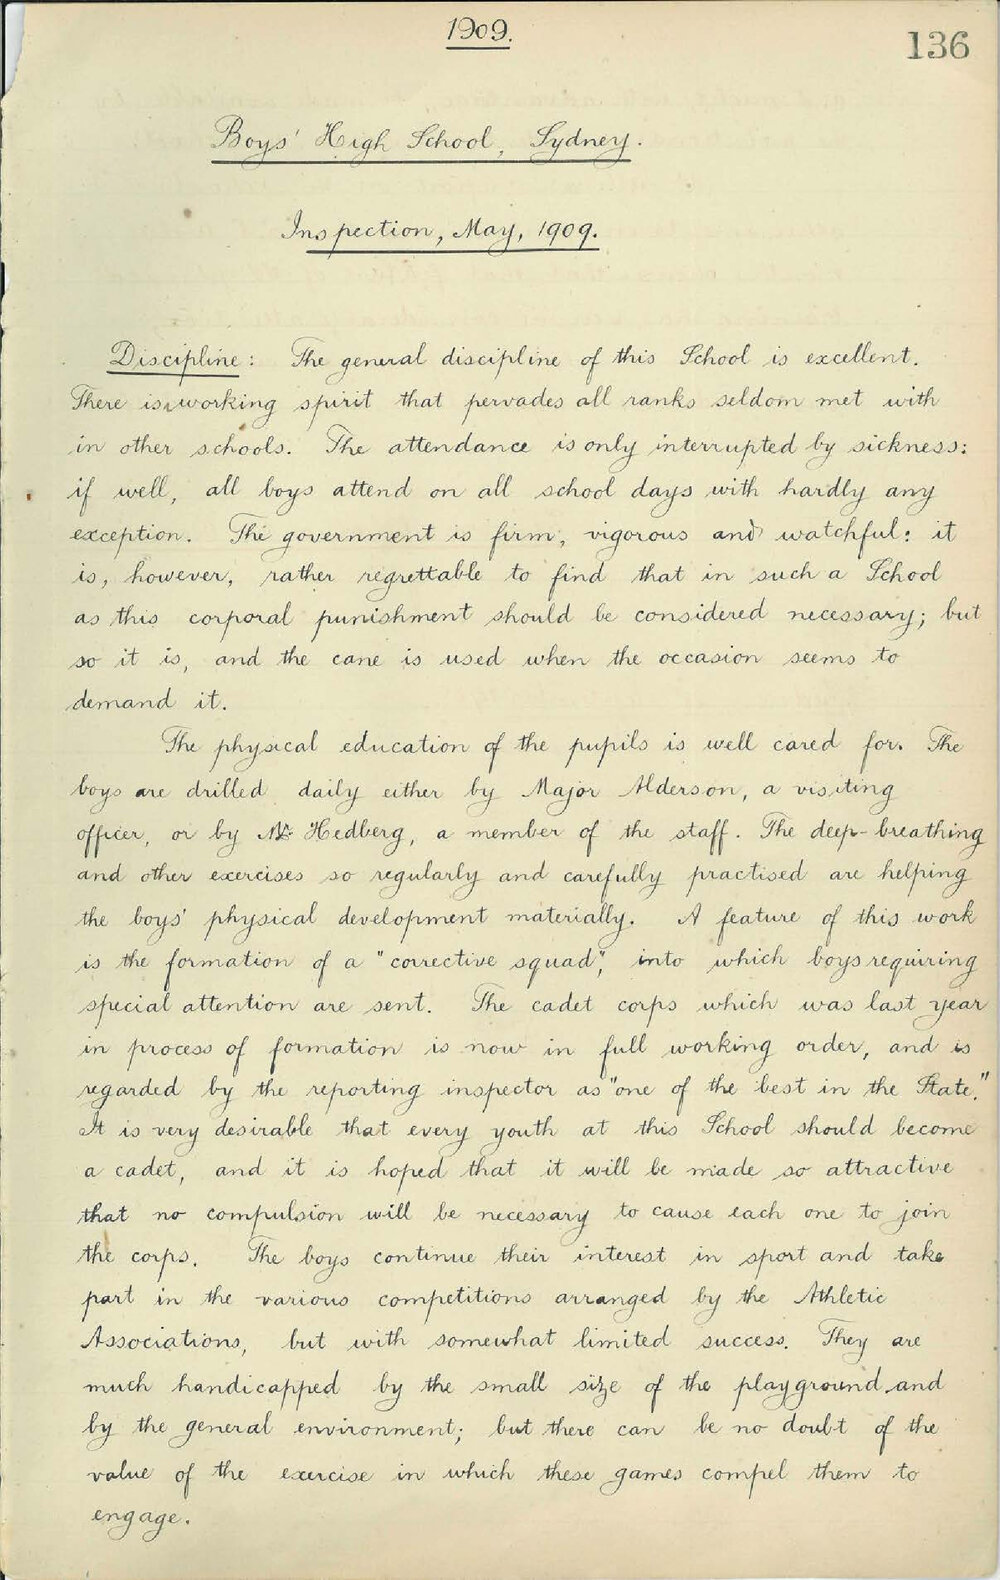 1909.
136
Boys' High School, Sydney.
Inspection, May, 1909.
Discipline: The general discipline of this School is excellent.
There is a working spirit that pervades all ranks seldom met with
in other schools. The attendance is only interrupted by sickness:
if well, all boys attend on all school days with hardly any
exception. The government is firm, vigorous and watchful: it
is, however, rather regrettable to find that in such a School
as this corporal punishment should be considered necessary; but
so it is, and the cane is used when the occasion seems to
demand it.
The physical education of the pupils is well cared for. The
boys are drilled daily either by Major Alderson, a visiting
officer, or by Mr Hedberg, a member of the staff. The deep-breathing
and other exercises so regularly and carefully practised are helping
the boys' physical development materially. A feature of this work
is the formation of a "corrective squad", into which boys requiring
special attention are sent. The cadet corps which was last year
in process of formation is now in full working order, and is
regarded by the reporting inspector as "one of the best in the State."
It is very desirable that every youth at this School should become
a cadet, and it is hoped that it will be made so attractive
that no compulsion will be necessary to cause each one to join
the corps. The boys continue their interest in sport and take
part in the various competitions arranged by the Athletic
Associations, but with somewhat limited success. They are
much handicapped by the small size of the playground and
by the general environment; but there can be no doubt of the
value of the exercise in which these games compel them to
engage.